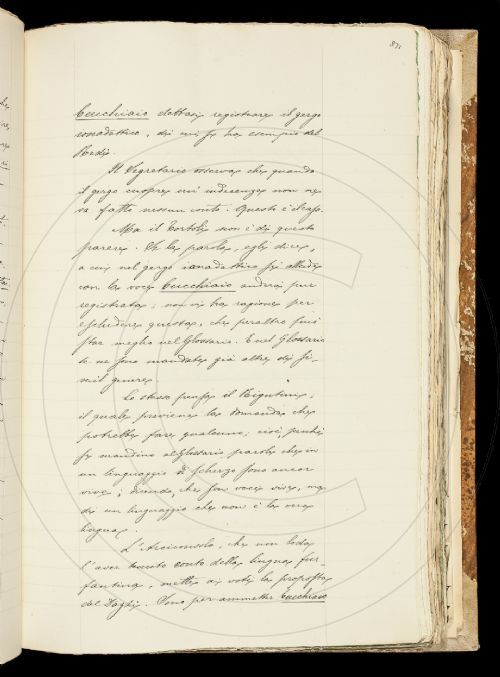 871
Cucchiaio dettasi registrare il gergo
ionadattico, di cui si ha esempio del
Redi.
Il Segretario osserva che quando
il gergo cuopre cose indecenti non ne
va fatto nessun conto. Questo è il caso.
Ma il Tortoli non è di questo
parere. Se la parola, egli dice,
a cui nel gergo ionadattico si allude
con la voce Cucchiaio andrà pur
registrata; non vi ha ragione per
escludere questa, che peraltro può
star meglio nel Glossario. E nel Glossario
se ne sono mandate già altre di si-
mil genere.
Lo stesso pensa il Rigutini;
il quale previene la domanda che
potrebbe fare qualcuno; cioè, perchè
si mandino al Glossario parole che in
un linguaggio di scherzo sono ancor
vive; dicendo, che son voci vive, ma
di un linguaggio che non è la vera
lingua.
L'Arciconsolo, che non loda
l'aver tenuto conto della lingua fur-
fantina, mette ai voti la proposta
del Dazzi. Sono per ammetter Cucchiaio